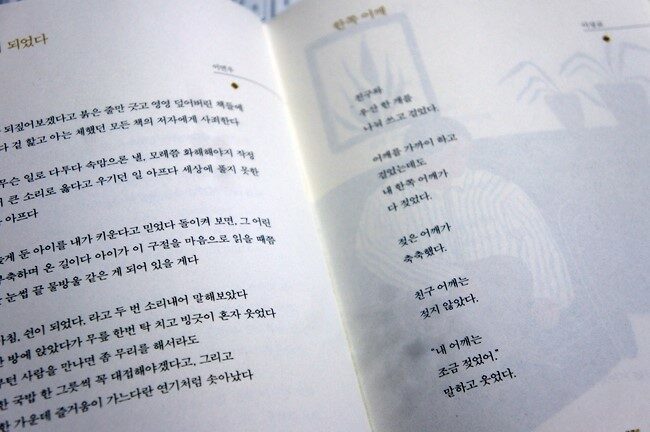 되었다
이면우
되짚어보겠다고 붉은 줄만 긋고 영영 덮어버린 책들에
겉 핥고 아는 체했던 모든 책의 저자에게 사죄한다
무슨 일로 다투다 속맘으론 낼, 모레쯤 화해해야지 작정
큰 소리로 옳다고 우기던 일 아프다 세상에 풀지 못한
아프다
둔 아이를 내가 키운다고 믿었다 돌이켜 보면, 그 어린
부축하며 온 길이다 아이가 이 구절을 마음으로 읽을 때쯤
눈썹 끝 물방울 같은 게 되어 있을 게다
쉰이 되었다. 라고 두 번 소리내어 말해보았다
방에 앉았다가 무릎 한번 탁 치고 빙긋이 혼자 웃었다
사람을 만나면 좀 무리를 해서라도
국밥 한 그릇씩 꼭 대접해야겠다고, 그리고
가운데 즐거움이 가느다란 연기처럼 솟아났다
한쪽 어깨
친구와
우산 한 개를
나눠 쓰고 걸었다.
어깨를 가까이 하고
걸었는데도
내 한쪽 어깨가
다 젖었다.
젖은 어깨가
축축했다.
친구 어깨는
젖지 않았다.
"내 어깨는
조금 젖었어."
말하고 웃었다.